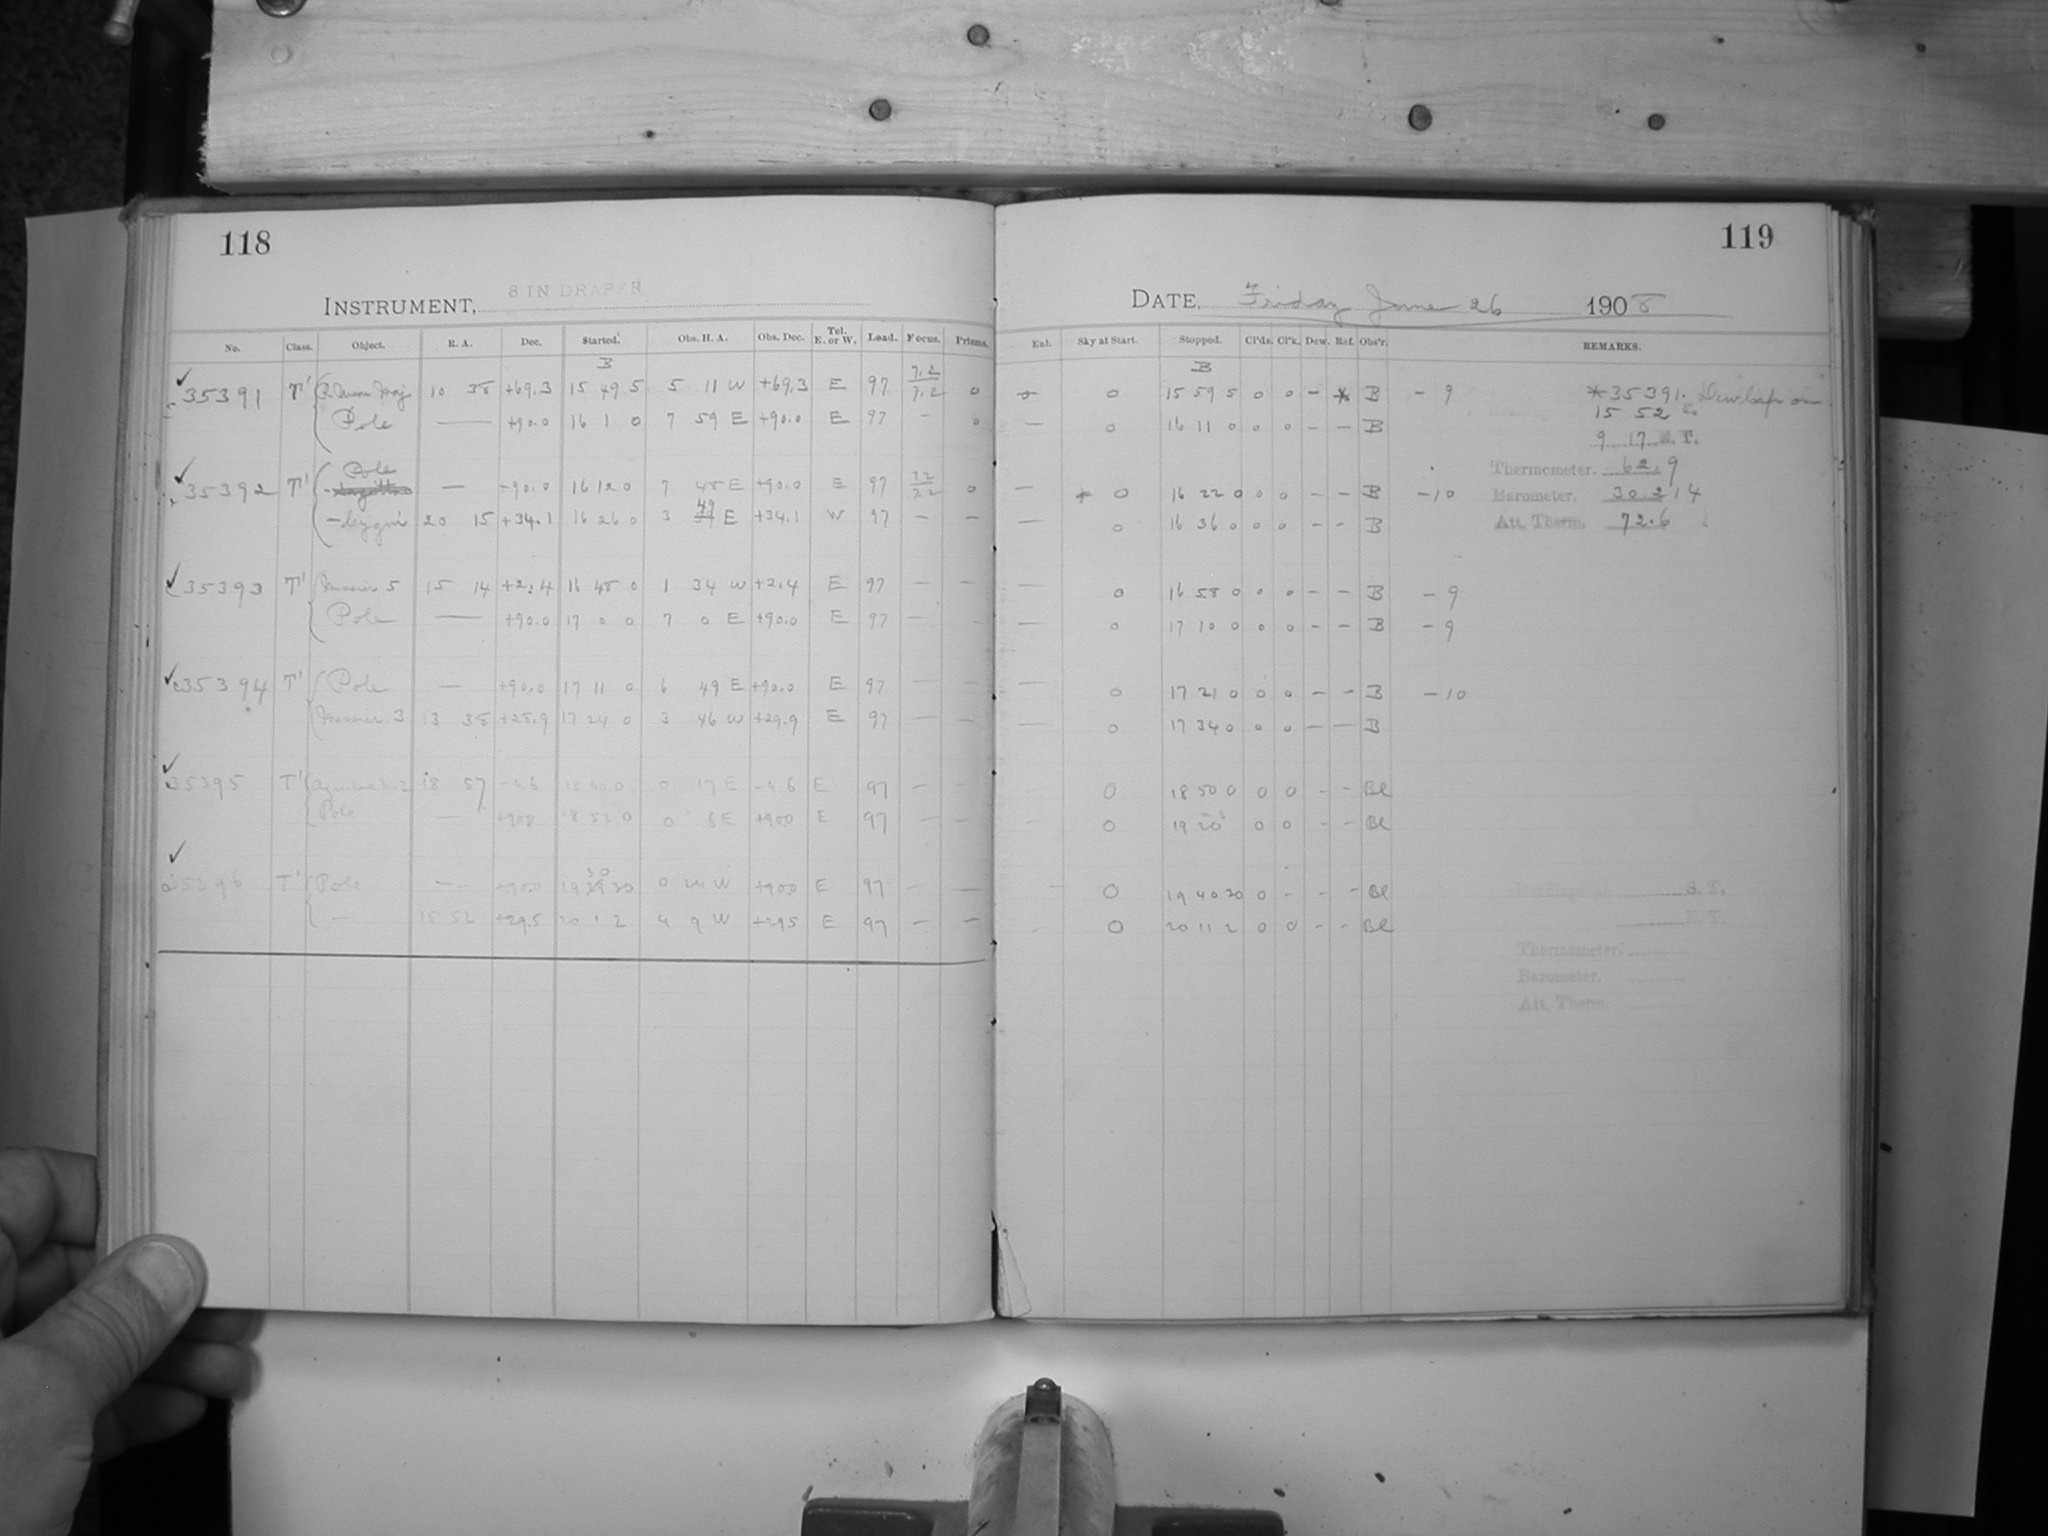 118
INSTRUMENT, 8 IN DRAPER
No. Class. Object. R. A. Dec. Started. Obs. H. A. Obs. Dec. Tel. E. or W. Load. Focus. Prisms.
B
35391 T' 10 38 +69.3 15 49 5 5 11 W +69.3 E 97 7.2 7.2 0
Pole — +90.0 16 1 0 7 59 E +90.0 E 97 - 0
Pole
35392 T' — -90.0 16 12 0 7 48 E +90.0 E 97 7.2 7.2 0
- Cygni 20 15 +34.1 16 26 0 3 49 E +34.1 W 97 — —
35393 T' Messier 5 15 14 +2.4 16 48 0 1 34 W +2.4 E 97 — —
Pole — +90.0 17 0 0 7 0 E +90.0 E 97 — —
35394 T' Pole — +90.0 17 11 0 6 49 E +90.0 E 97 — —
Messier 3 13 38 +28.9 17 24 0 3 46 W +29.9 E 97 — —
35395 T' 18 57 18 40 0 0 17 E E 97 - -
Pole — +900 18 52 0 0 E +900 E 97 - -
35396 T' Pole — +900 19 30 20 0 24 W +900 E 97 - —
— 15 52 +29.5 20 1 2 4 9 W +295 E 97 - —
119
DATE, Friday June 26 1908
Enl. Sky at Start. Stopped. Cl'ds. Cl'k. Dew. Ref. Obs'r. REMARKS.
B
0 15 59 5 0 0 - * B - 9 *35391. Dewcap on
— 0 16 11 0 0 0 - - B 15 52
9 17
Thermometer. 62.9
— * 0 16 22 0 0 0 - - B -10 Barometer. 30.214
— 0 16 36 0 0 0 - - B Att. Therm. 72.6
— 0 16 58 0 0 0 - - B - 9
— 0 17 10 0 0 0 - - B - 9
— 0 17 21 0 0 0 - - B - 10
— 0 17 34 0 0 0 - - B
0 18 50 0 0 0 - - Bl
0 19 2 0 0 0 - - Bl
0 19 40 20 0 - - - Bl S. T.
0 20 11 2 0 0 - - Bl
Thermometer.
Barometer.
Att. Therm.